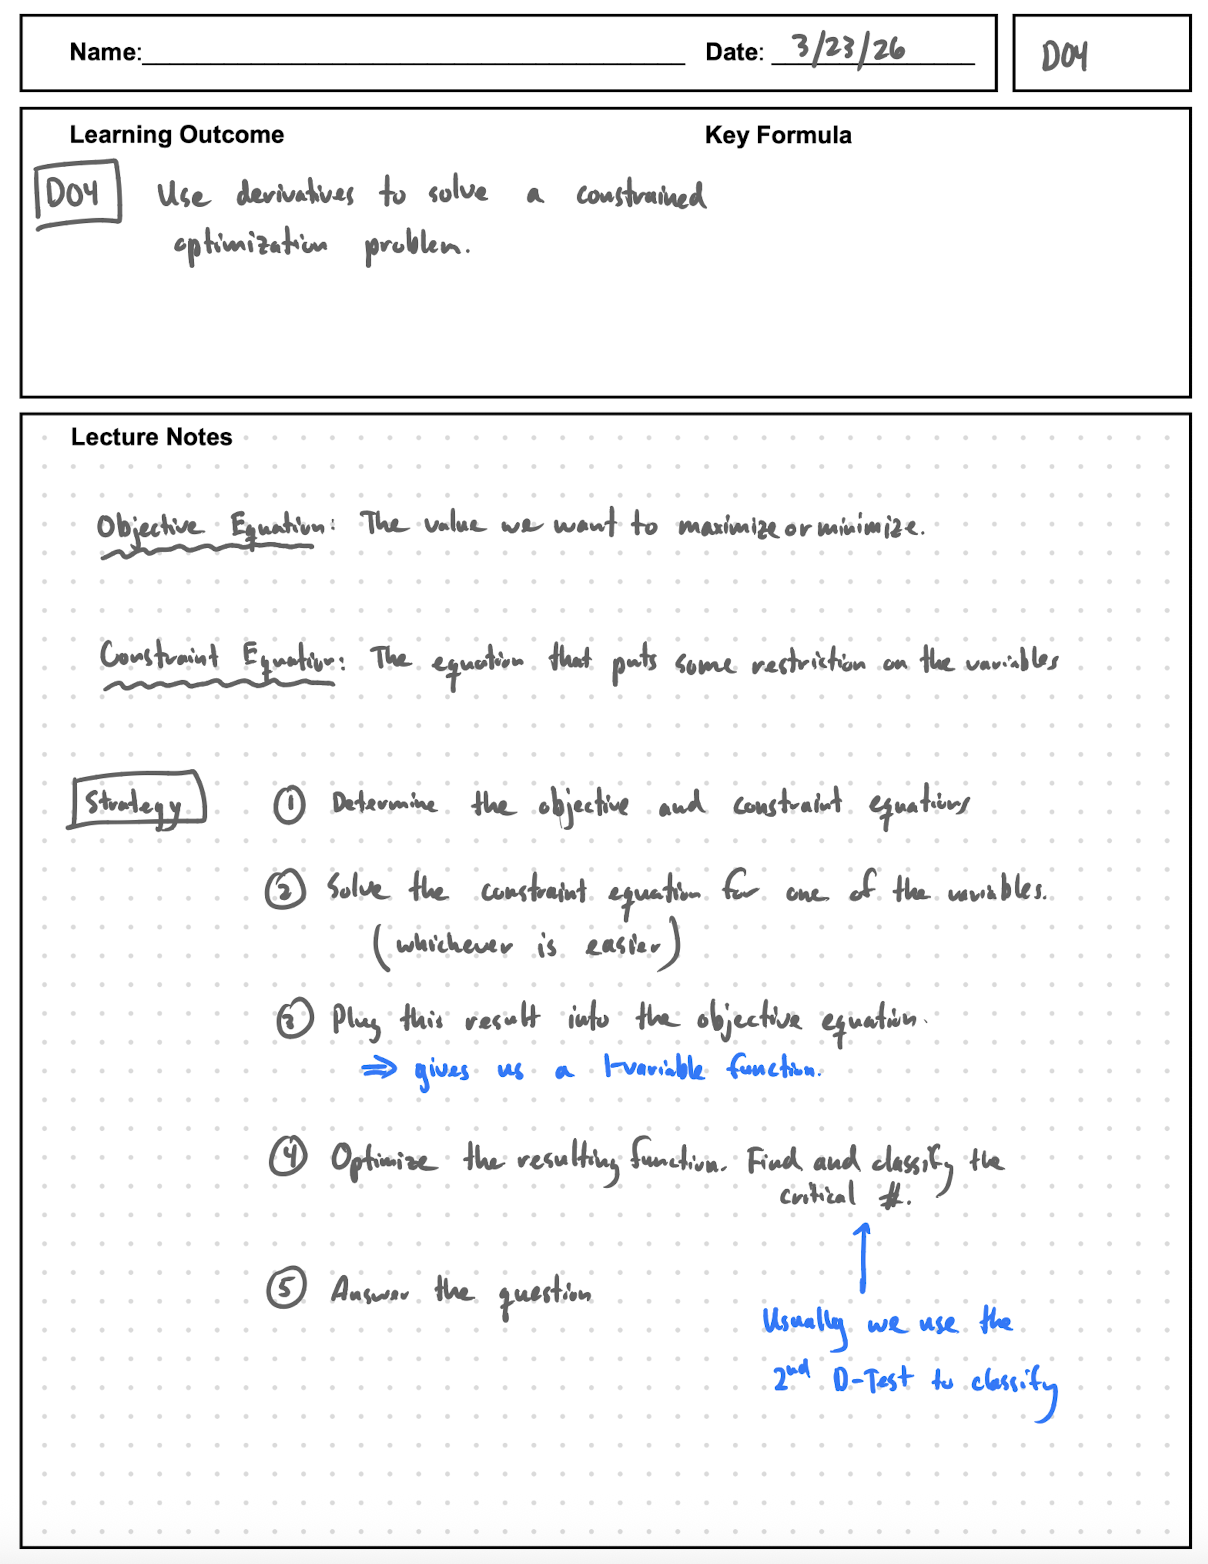 Name: Date: 3/23/26 DO4
Learning Outcome Key Formula
DO4 Use derivatives to solve a constrained
optimization problem.
Lecture Notes
Objective Equation: The value we want to maximize or minimize.
Constraint Equation: The equation that puts some restriction on the variables
Strategy ① Determine the objective and constraint equations
② Solve the constraint equation for one of the variables.
(whichever is easier)
③ Plug this result into the objective equation.
⇒ gives us a 1-variable function.
④ Optimize the resulting function. Find and classify the
critical #.
⑤ Answer the question
↑
Usually we use the
2nd D-Test to classify